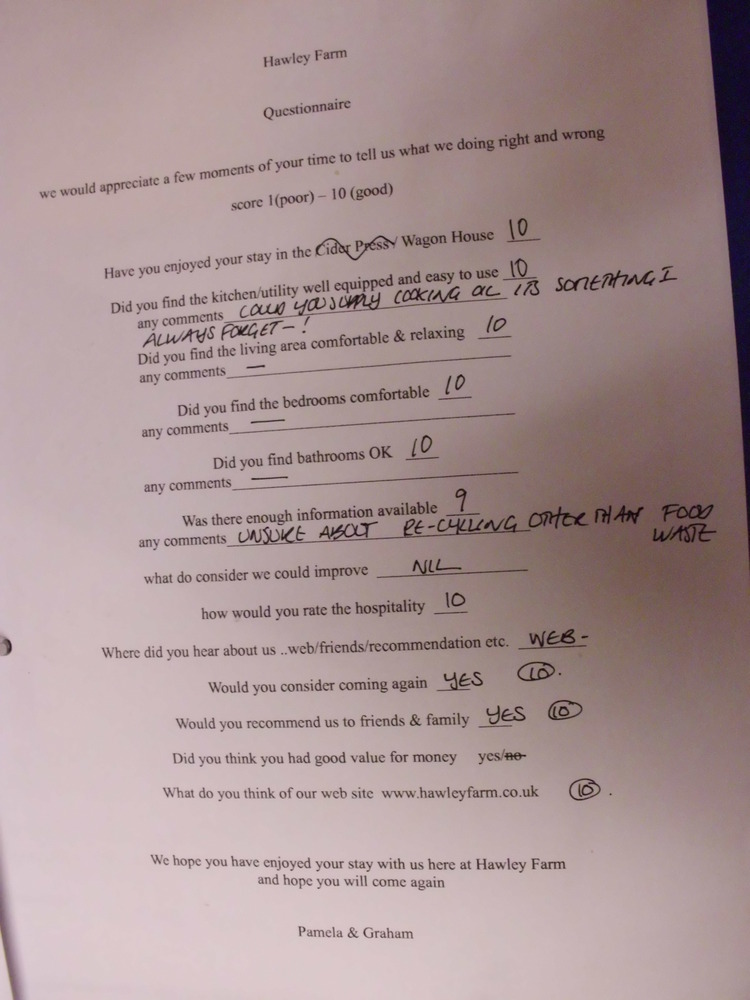 Hawley Farm
Questionnaire
we would appreciate a few moments of your time to tell us what we doing right and wrong
score 1(poor) – 10 (good)
Have you enjoyed your stay in the Cider Press/ Wagon House 10
Did you find the kitchen/utility well equipped and easy to use 10
any comments COULD YOU SUPPLY COOKING OIL ITS SOMETHING I
ALWAYS FORGET - !
Did you find the living area comfortable & relaxing 10
any comments —
Did you find the bedrooms comfortable 10
any comments —
Did you find bathrooms OK 10
any comments —
Was there enough information available 9
any comments UNSURE ABOUT RE-CYCLING OTHER THAN FOOD
WASTE
what do consider we could improve NIL
how would you rate the hospitality 10
Where did you hear about us ..web/friends/recommendation etc. WEB -
Would you consider coming again YES 10.
Would you recommend us to friends & family YES 10
Did you think you had good value for money yes/no
What do you think of our web site www.hawleyfarm.co.uk 10.
We hope you have enjoyed your stay with us here at Hawley Farm
and hope you will come again
Pamela & Graham